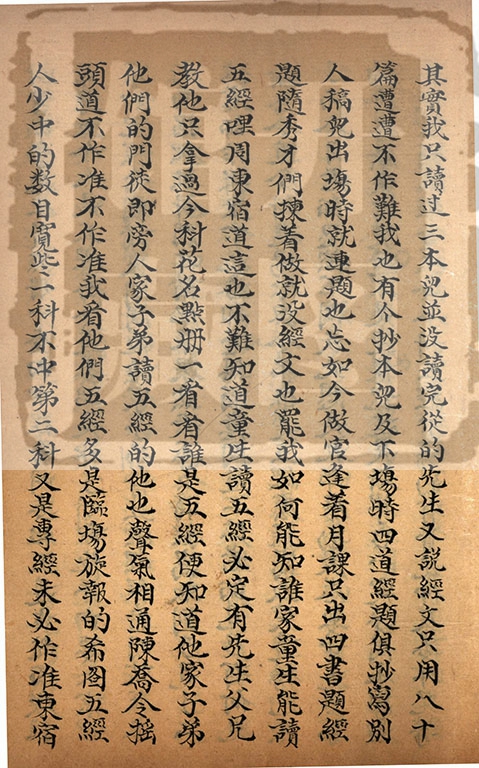 其實我只讀过三本兒並没讀完從的先生又説經文只用八十
篇遭遭不作難我也有个抄本兒及下塲時四道經題俱抄寫别
人稿兒出塲時就連題也忘如今做官逢着月課只出四書題經
題隨秀才們揀着做就没經文也罷我如何能知誰家童生能讀
五經哩周東宿道這也不難知道童生讀五經必定有先生父兄
教他只拿過今科花名點册一看看誰是五經便知道他家子弟
他們的門徒即旁人家子弟讀五經的他也聲氣相通陳喬令摇
頭道不作准不作准我看他們五經多是臨塲旋報的希图五經
人少中的数目寛些一科不中第二科又是專經未必作准東宿